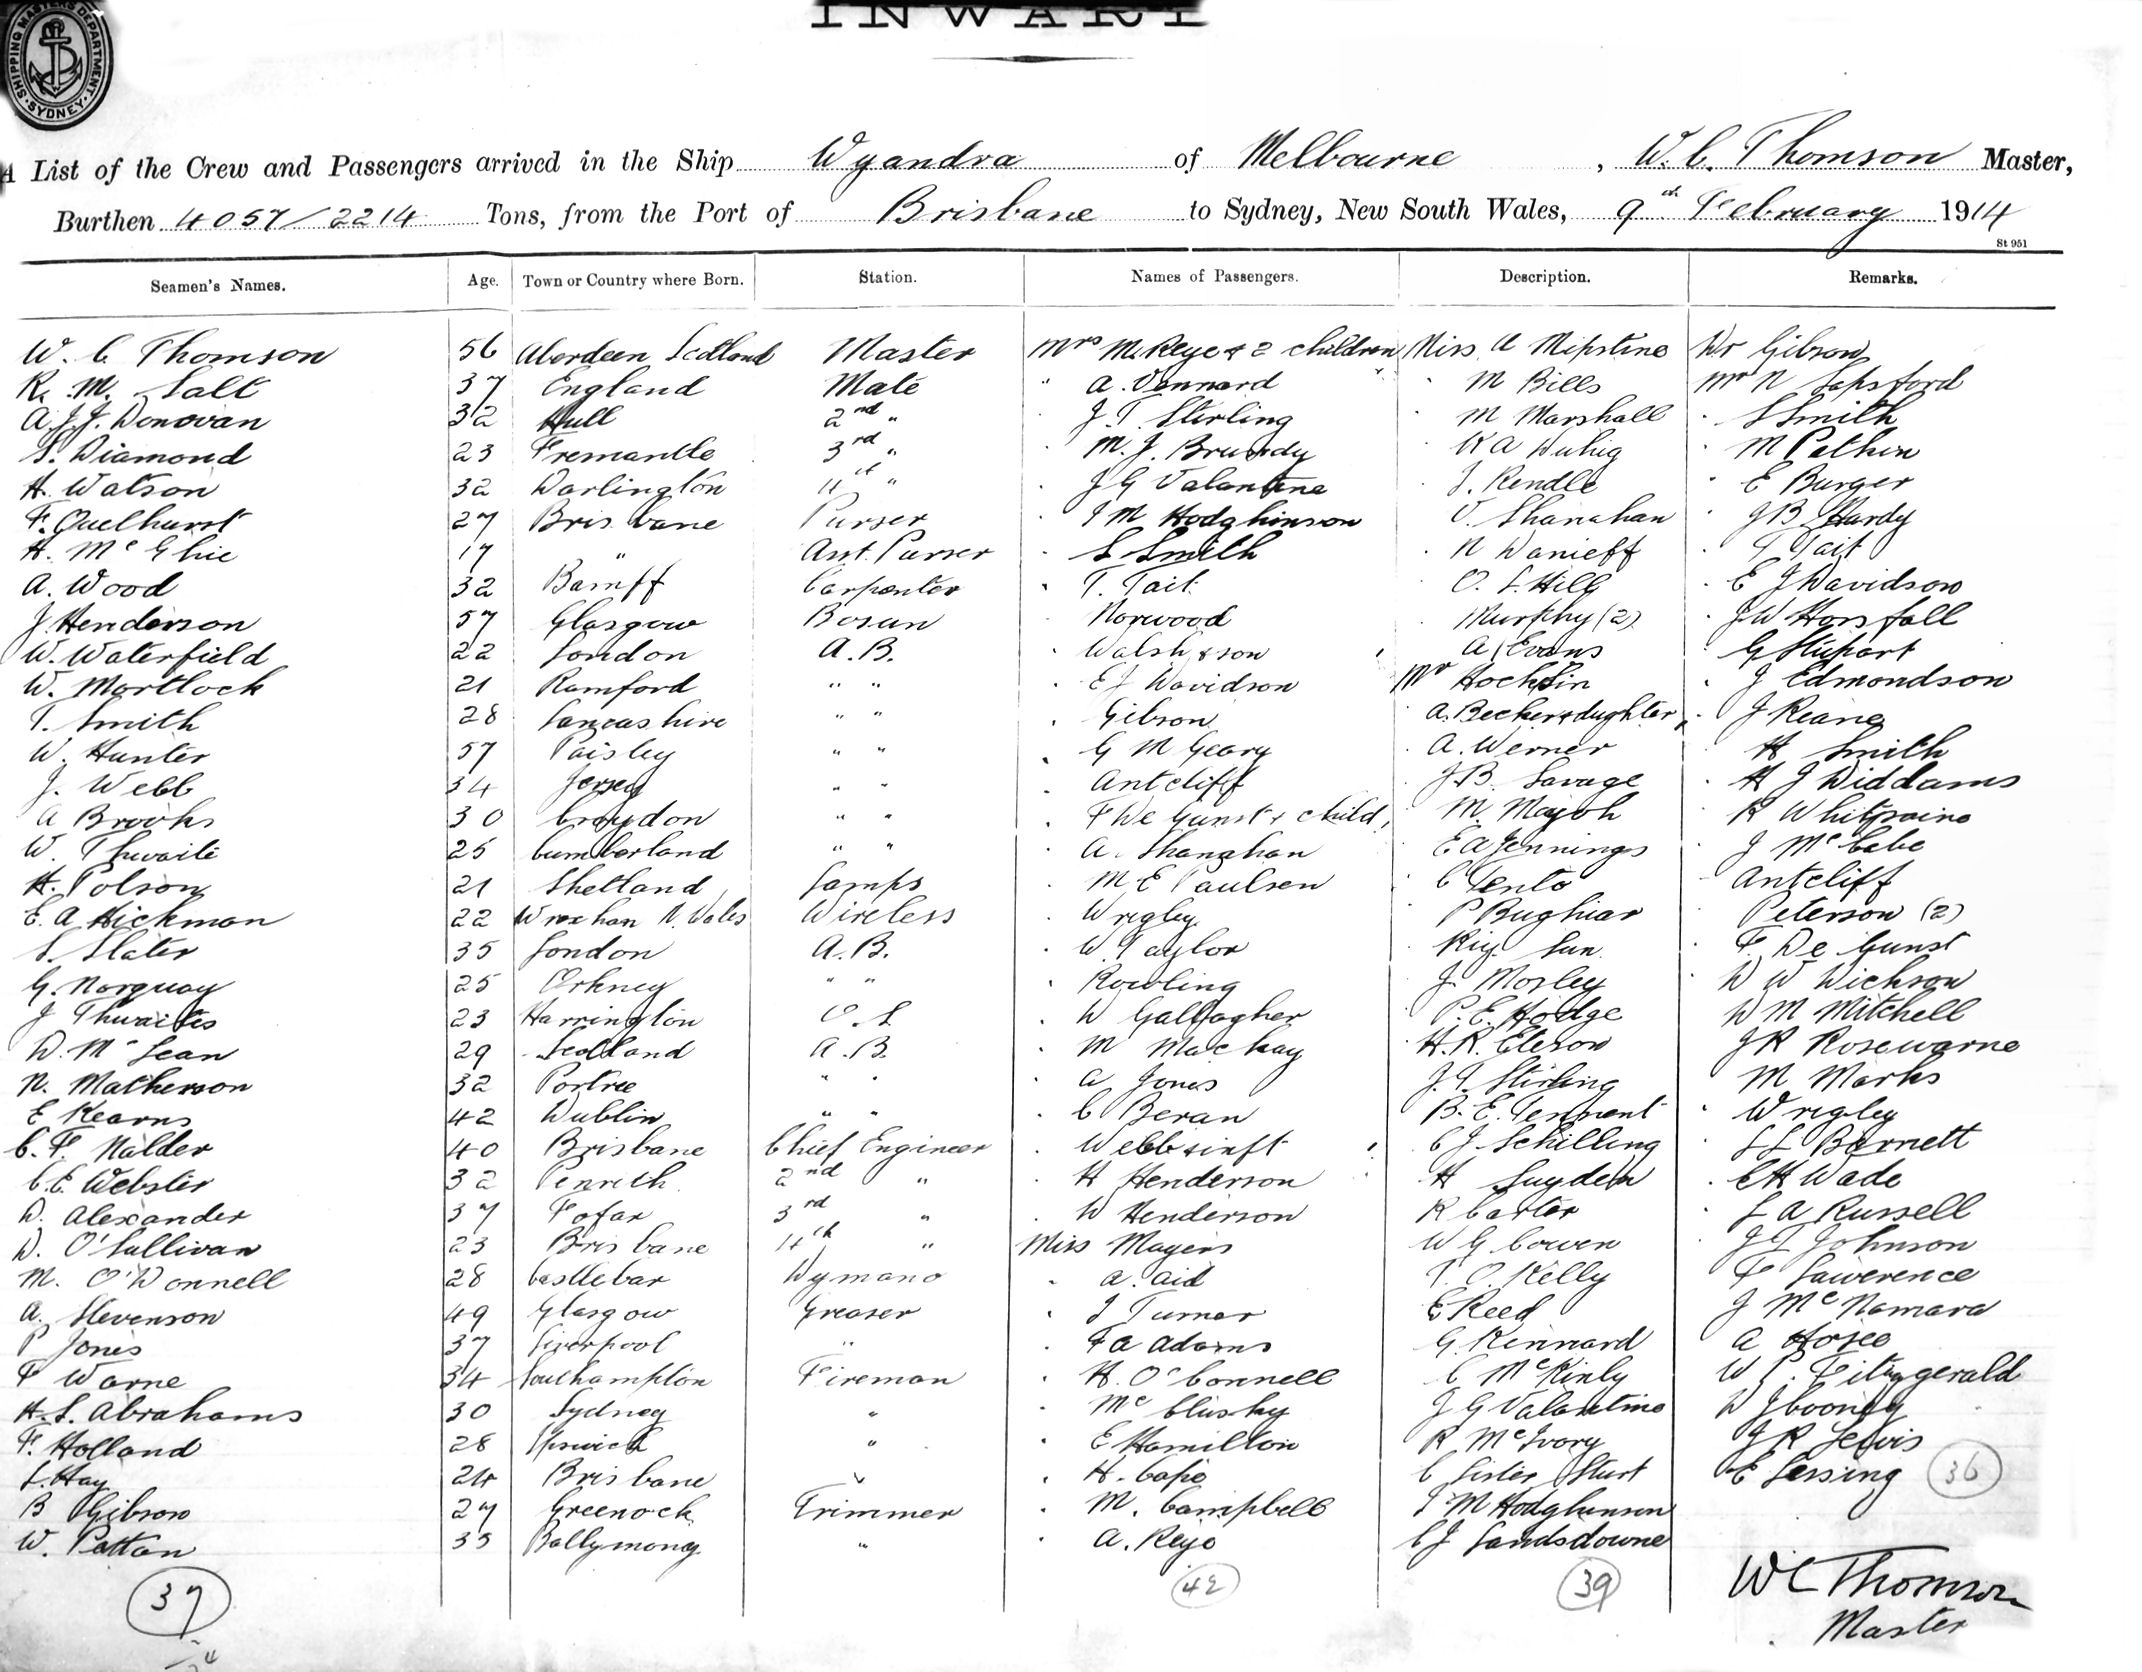 SHIPPING MASTERS DEPARTMENT SYDNEY
INWARD
A List of the Crew and Passengers arrived in the Ship Wyandra of Melbourne, W. C. Thomson Master,
Burthen 4057/2214 Tons, from the Port of Brisbane to Sydney, New South Wales, 9th February 1914
St 951
Seamen's Names. Age. Town or Country where Born. Station. Names of Passengers. Description. Remarks.
W. C Thomson 56 Aberdeen Scotland Master Mrs McKeye & 2 children Miss A Mipstine Dr Gibson
R. M. Salt 37 England Mate " A. Vennard M Bills Mr N Sapsford
A. J. J. Donovan 32 Hull 2nd " J. T. Stirling M Marshall S Smith
S. Diamond 23 Fremantle 3rd " M. J. Brundy K A Duhig M Pethin
H. Watson 32 Darlington 4th " J G Valantine J. Rendle E Burger
F. Quelhurst 27 Brisbane Purser I M Hodghinson V. Shanahan J B Hardy
H. McGhie 17 " Asst. Purser S Smith N Danieff T Tait
A. Wood 32 Bamff Carpenter T. Tait O. S. Hill E J Davidson
J. Henderson 57 Glasgow Bosun Norwood Murphy (2) J W Horsfall
W. Waterfield 22 London A. B. Walsh & son A Evans G Stupart
W. Mortlock 21 Ramford " " E J Davidson Mr Hochlin J Edmondson
T. Smith 28 Lancashire " " Gibson A. Becker & dughter J Keane
W. Hunter 57 Paisley " " G M Geary A. Werner H Smith
J. Webb 34 Jersey " " Antcliff J B. Savage H J Diddams
A Brooks 30 Croydon " " F De Gunst & child, M. Mayoh R Whitpaine
W. Thwaite 25 Cumberland " " A. Shanahan E A Jennings J McCabe
H. Polson 21 Shetland Lamps M E Paulsen C Tento Antcliff
E. A Hickman 22 Wrexhan N. Wales Wireless Wrigley P Bughiar Peterson (2)
S. Slater 35 London A. B. W. Taylor Kig Sun F. De Gunst
G. Norquay 25 Orkney " " Rowling J. Morley D W Dickson
J Thwaites 23 Harrington O. S W Gallagher P. E. Hodge D M Mitchell
D. McLean 29 Scotland A. B. M Mackay H. R. Eleson J R Rosewarne
N. Matherson 32 Portree " " A Jones J. T. Stirling M Marks
E Kearns 42 Dublin " " C Beran B. E. Tennent Wrigley
C. F. Nalder 40 Brisbane Chief Engineer Webb & inft C J. Schilling S L Barnett
C. E. Webster 32 Penrith 2nd " H Henderson H Suyden E H Wade
D. Alexander 37 Fofar 3rd " W Henderson R Carter L A Russell
D. O'Sullivan 23 Brisbane 4th " Miss Mayers W G Cowen J L Johnson
M. O'Donnell 28 Castlebar Dymano A. Aid T. O. Kelly F Lawerence
A. Stevenson 49 Glasgow Greaser J Turner E Reed J McNamara
P Jones 37 Liverpool " F A Adams G. Kennard A Hosee
F Warne 34 Southampton Fireman H. O'Connell C McKinly W P. Fitzgerald
H. S. Abrahams 30 Sydney " McClusky J G Valantine D J Cooney
F. Holland 28 Ipswich " E Hamilton R McIvory J R Lewis
L. Hay 24 Brisbane " H. Cape C Sister Sturt E Lessing 36
B Gibson 27 Greenock Trimmer M. Campbell I M Hodghinson
W. Patton 35 Ballymoney " A. Keye C J Landsdowne
37 42 39
W C Thomson
Master